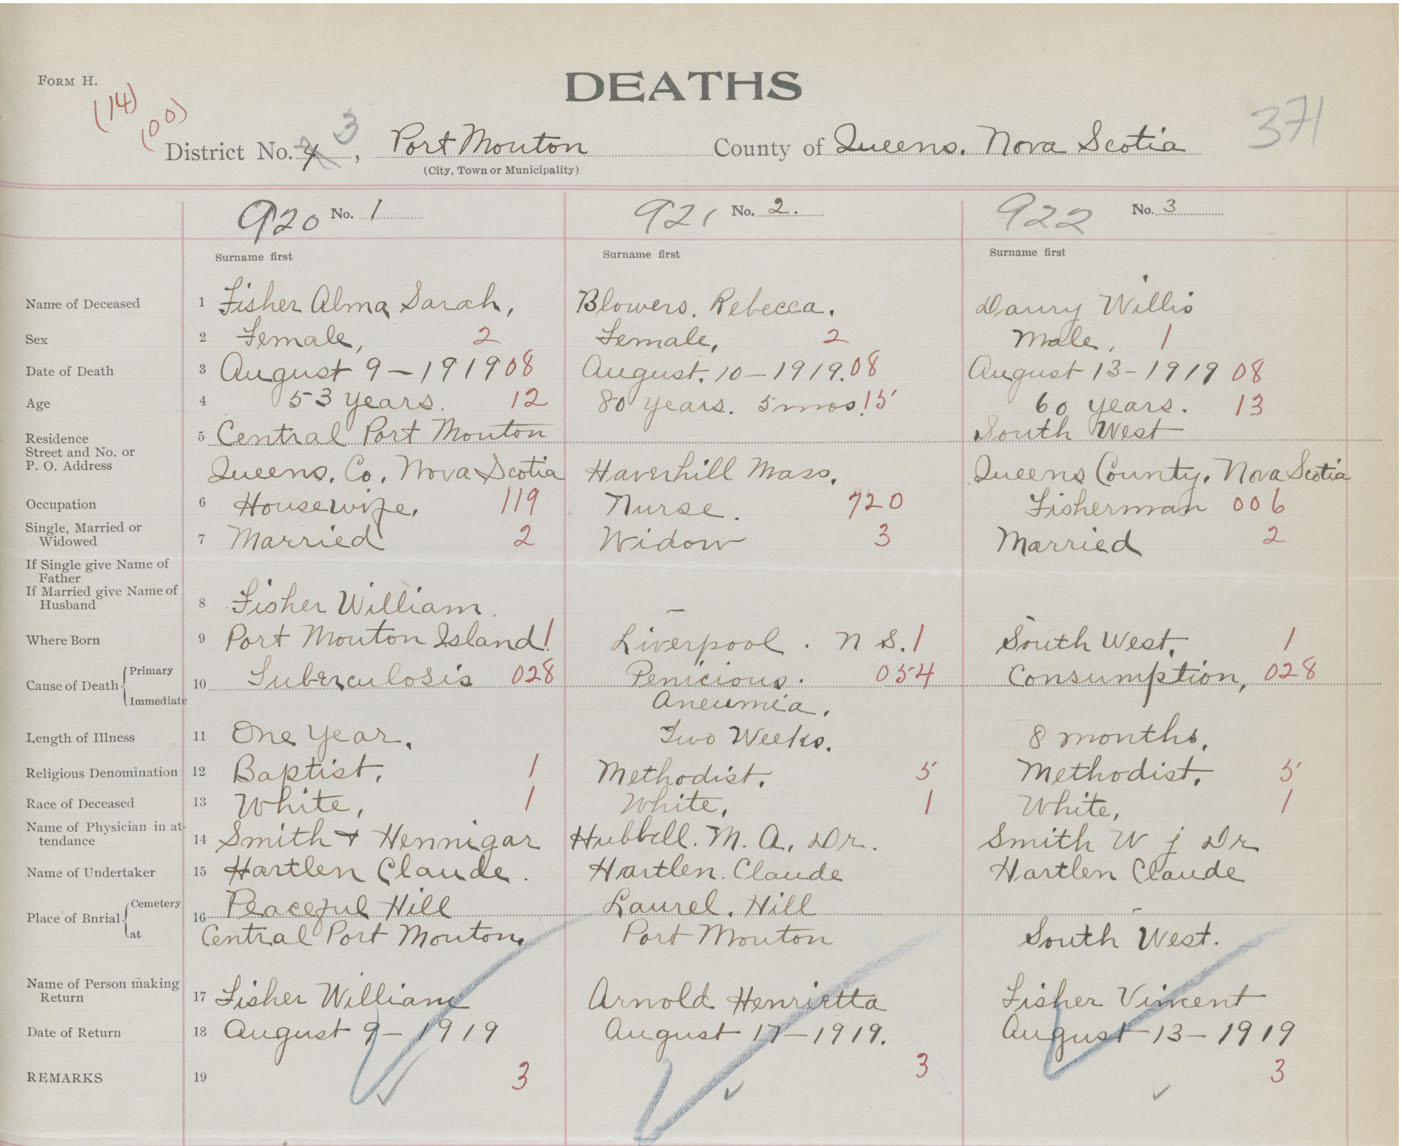 FORM H.
DEATHS
(14)
(00)
371
3
District No. 4, Port Mouton County of Queens. Nova Scotia
(City, Town or Municipality)
920 No. 1 921 No. 2. 922 No. 3
Surname first Surname first Surname first
Name of Deceased 1 Fisher Alma Sarah, Blowers. Rebecca. Daury Willis
Sex 2 Female, 2 Female, 2 Male, 1
Date of Death 3 August 9-1919 08 August. 10-1919. 08 August 13-1919 08
Age 4 53 years. 12 80 years. 5 mos. 15 60 years. 13
Residence 5 Central Port Mouton South West
Street and No. or
P. O. Address Queens. Co. Nova Scotia Haverhill Mass. Queens County. Nova Scotia
Occupation 6 Housewife. 119 Nurse. 720 Fisherman 006
Single, Married or
Widowed 7 Married 2 Widow 3 Married 2
If Single give Name of
Father
If Married give Name of
Husband 8 Fisher William. —
Where Born 9 Port Mouton Island. 1 Liverpool. N S. 1 South West. 1
Cause of Death Primary 10 Tuberculosis 028 Penicious. 054 Consumption, 028
Immediate Aneumia.
Length of Illness 11 One Year. Two Weeks. 8 months.
Religious Denomination 12 Baptist. 1 Methodist. 5 Methodist. 5
Race of Deceased 13 White, 1 White, 1 White, 1
Name of Physician in at-
tendance 14 Smith & Hennigar Hubbell. M. A. Dr. Smith W J Dr
Name of Undertaker 15 Hartlen Claude. Hartlen. Claude Hartlen Claude
Place of Burial Cemetery 16 Peaceful Hill Laurel. Hill —
at Central Port Mouton. Port Mouton South West.
Name of Person making
Return 17 Fisher William Arnold Henrietta Fisher Vincent
Date of Return 18 August 9-1919 August 17-1919. August 13-1919
REMARKS 19 3 3 3